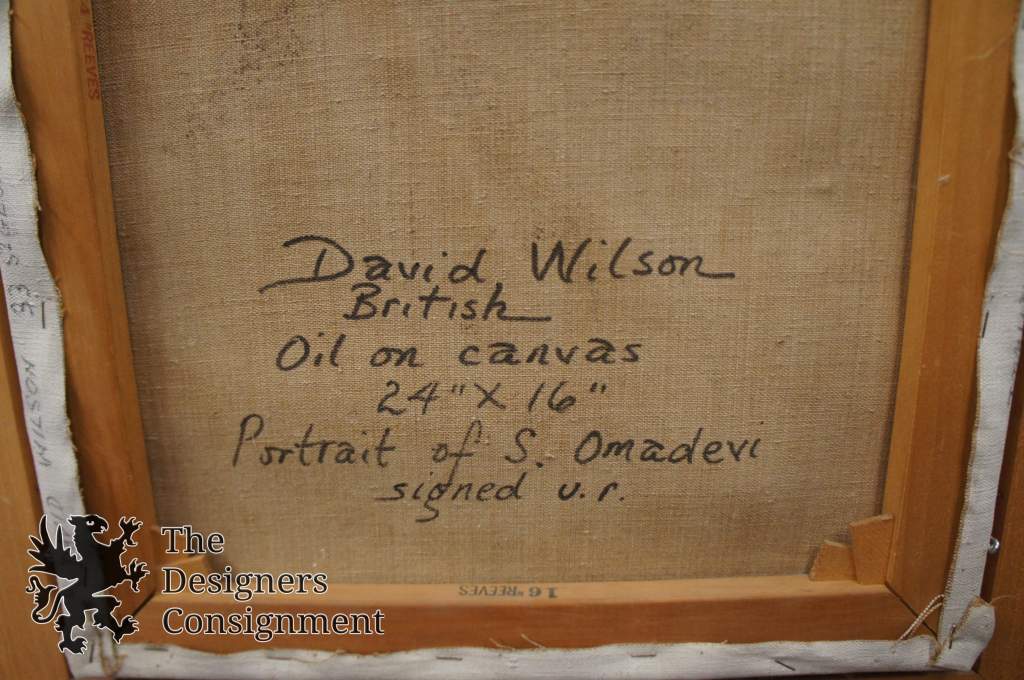 REEVES
David Wilson
British
Oil on canvas
24" X 16"
Portrait of S. Omadevi
signed u.r.
WILSON 33
16" REEVES
The
Designers
Consignment